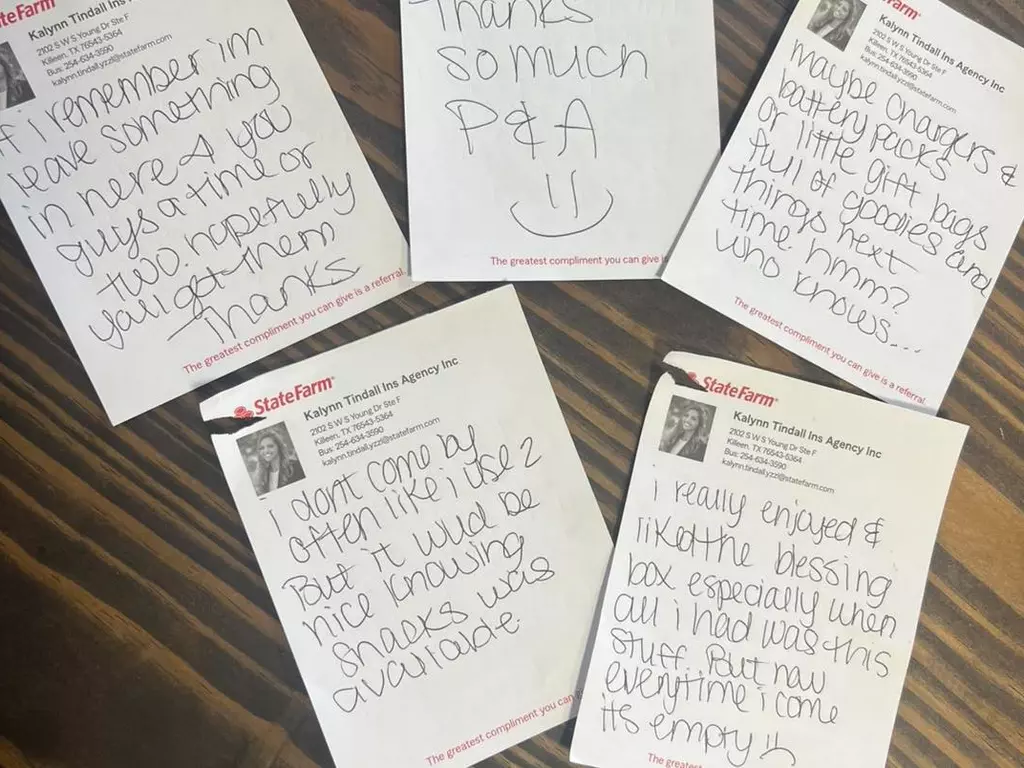 StateFarm
Kalynn Tindall Ins
2102 S W S Young Dr Ste F
Killeen, TX 76543-5364
Bus: 254-634-3590
kalynn.tindall.yzzl@statefarm.com
if i remember im
leave something
in here 4 you
guys a time or
two. hopefully
yall get them
Thanks
The greatest compliment you can give is a referral.
Thanks
so much
P & A
The greatest compliment you can give is
Farm
Kalynn Tindall Ins Agency Inc
2102 S W S Young Dr Ste F
Killeen, TX 76543-5364
Bus: 254-634-3590
kalynn.tindall.yzzl@statefarm.com
maybe chargers &
battery packs
or little gift bags
full of goodies and
things next
time. hmm?
who knows...
The greatest compliment you can give is a referral.
StateFarm
Kalynn Tindall Ins Agency Inc
2102 S W S Young Dr Ste F
Killeen, TX 76543-5364
Bus: 254-634-3590
kalynn.tindall.yzzl@statefarm.com
i dont come by
often like i use 2
But it wud be
nice knowing
snacks was
available.
The greatest compliment you can
StateFarm
Kalynn Tindall Ins Agency Inc
2102 S W S Young Dr Ste F
Killeen, TX 76543-5364
Bus: 254-634-3590
kalynn.tindall.yzzl@statefarm.com
i really enjoyed &
liked the blessing
box especially when
all i had was this
stuff. But now
everytime i come
its empty
The greatest